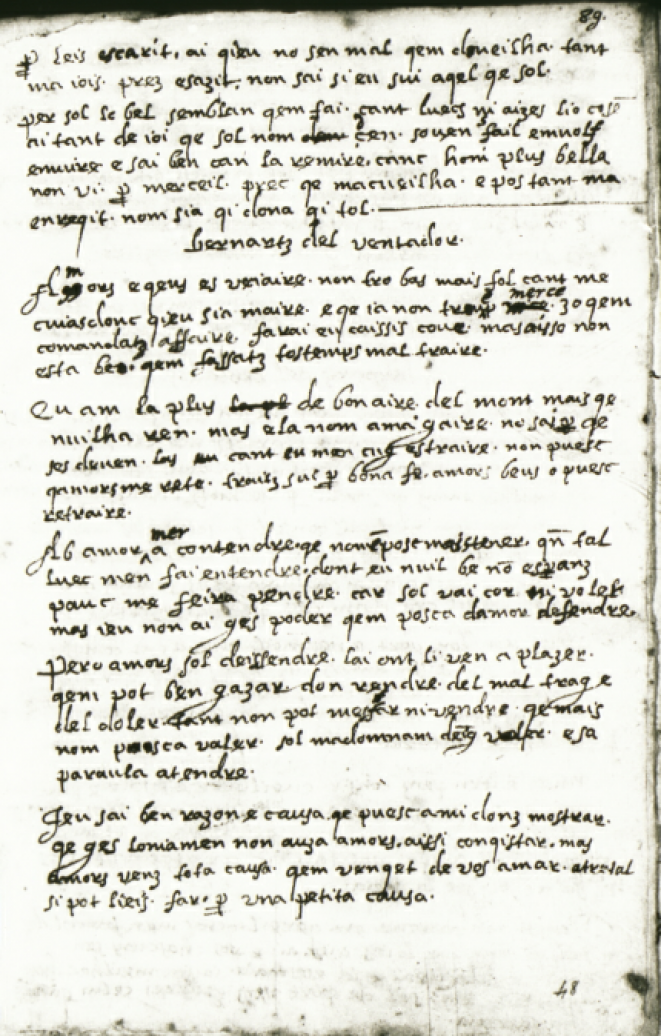 89.
p leis escarit. ai qieu no sen mal qem doueilha. tant
ma iois. prez esazit. non sai si eu sui aqel qe sol.
per sol lo bel semblan qem fai. cant luecs ni aizes lio
ai tant de ioi qe sol nom cen. souen fail emuolf
emuire e sai ben can la remire. canc hom plus bella
non vi. p merceil. prec qe macueilha. e pos tant ma
enreqit. nom sia qi dona qi tol.
bernartz del ventador.
Amors eqeus es veiaire. non tro bas mais fol cant me
cuias donc qieu sia maire. e qe ia non merce. zo qem
comandatz affaire. farai eu caissis coue. mas aisso non
esta ben. qem fassatz tostemps mal traire.
Qu am la plus la pl de bon aire. del mont mais qe
nuilha ren. mas ela nom ama gaire. no sai p qe
ses deuen. las cant eu men cug estraire. non puesc
qamors me rete. traitz sui p bona fe. amors beus o puesc
retraire.
Ab amor mer a contendre. qe nom posc mais tener. qn tal
luec men fai entendre. dont eu nuil be no esperanz
pauc me feira pendre. car sol vai cor ni voler
mas ieu non ai ges poder qem posca damor defendre.
Pero amors sol deissendre. lai ont li ven a plazer.
qem pot ben gazar don rendre. del mal trag e
del doler. tant non pot ni vendre. qe mais
nom puosca valer. sol madomnam valer. e sa
paraula atendre.
Jeu sai ben razon e causa. qe puesc a mi donz mostrar.
qe ges loniamen non auza amors. aissi conqistar. mas
amors venz tota causa. qem venget de ves amar. atretal
si pot lieis. far. p vna petita causa.
48